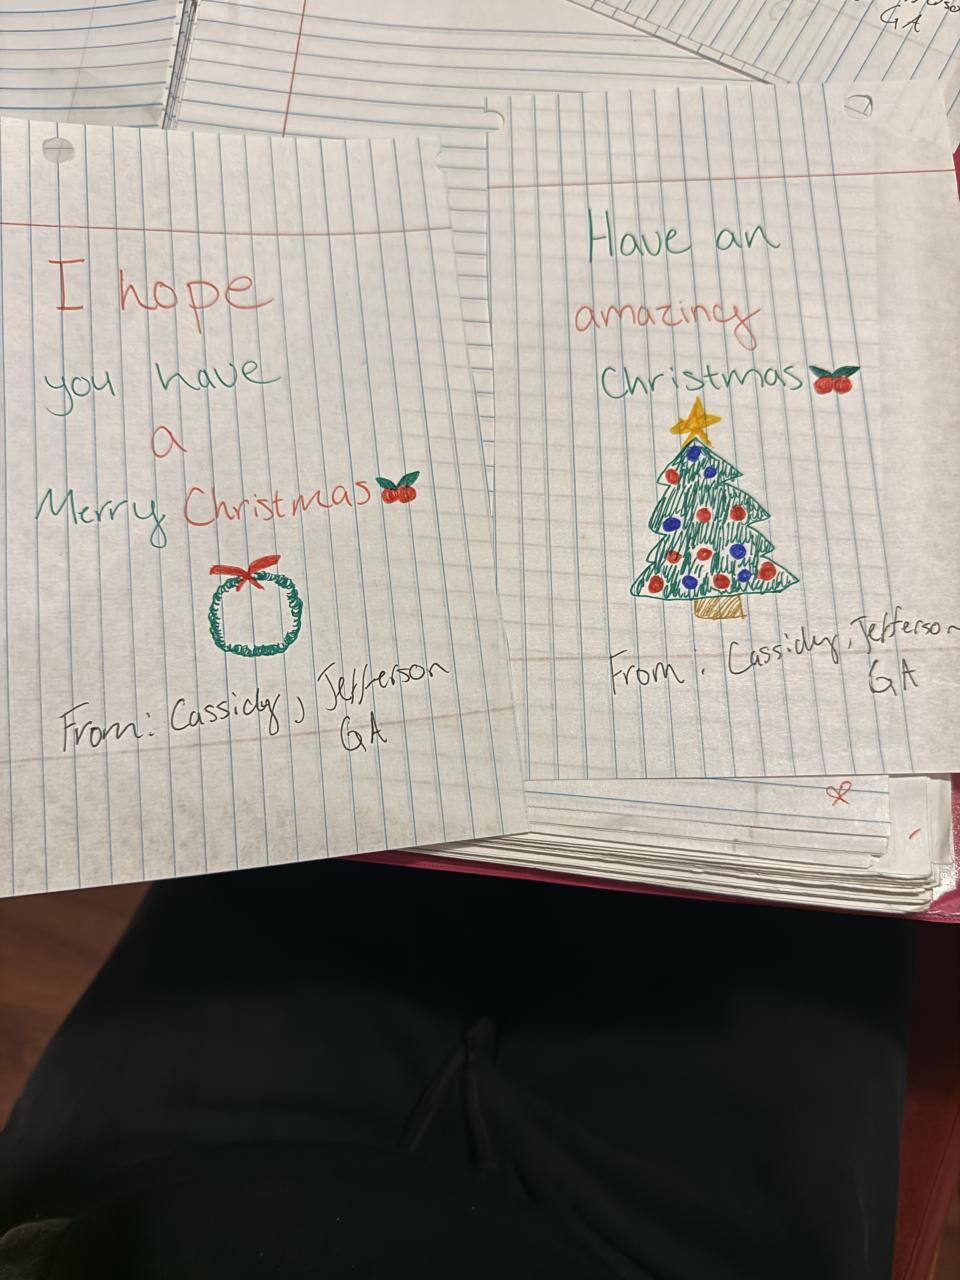 I hope
you have
a
Merry Christmas
From: Cassidy, Jefferson
GA
Have an
amazing
Christmas
From: Cassidy, Jefferson
GA
GA